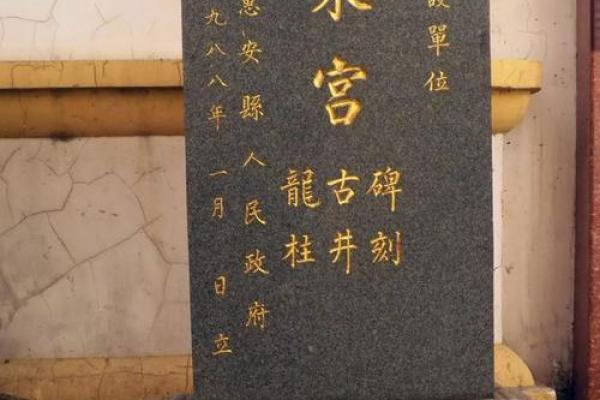 單位
宮
碑刻
古井
龍柱
惠安縣人民政府
九八八年一月 日立